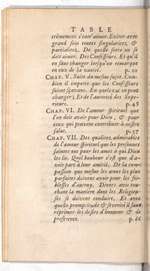 TABLE
trémement s'entr'aimer. Eviter avec
grand soin toutes singularitez, &
partialitez. De quelle sorte on se
doit aimer. Des Confesseurs. Et qu'il
en faut changer lorsqu'on remarque
en eux de la vanité. p. 22
CHAP. V. Suite du mesme sujet. Com-
bien il importe que les Confesseurs
soient sçavans. En quels cas on peut
changer; Et de l'autorité des Supe-
rieurs. p. 45
CHAP. VI. De l'amour spirituel que
l'on doit avoir pour Dieu, & pour
ceux qui peuvent contribuer à nostre
salut. p. 57
CHAP. VII. Des qualitez admirables
de l'amour spirituel que les personnes
saintes ont pour les ames à qui Dieu
les lie. Quel bonheur c'est que d'a-
voir part à leur amitié. De la com-
passion que mesme les ames les plus
parfaites doivent avoir pour les foi-
blesses d'autruy. Divers avis tou-
chant la maniere dont les Religieu-
ses se doivent conduire, Et avec
quelle promptitude & severité il faut
réprimer les desirs d'honneur & de
preference. p. 66